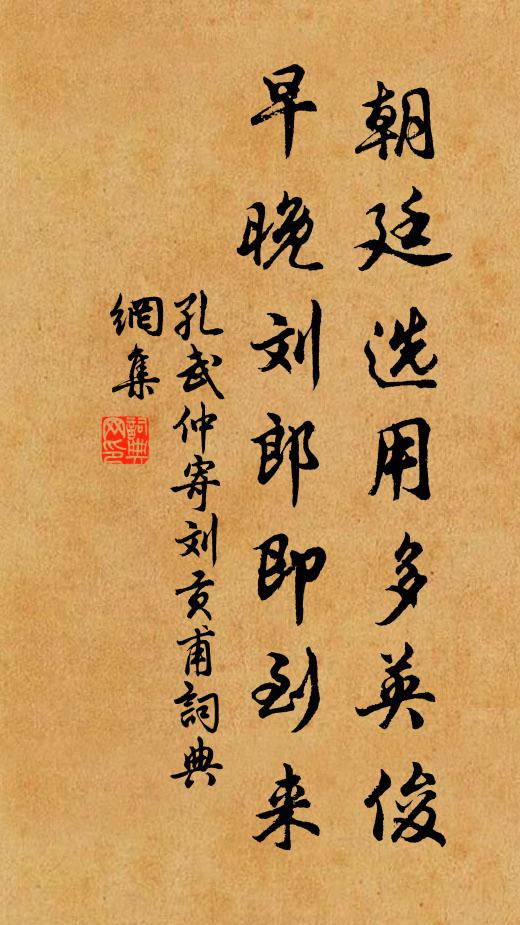 朝廷选用多英俊
早晚刘郎即到来
孔武仲寄刘贡甫詞典
網集
詞典
网印